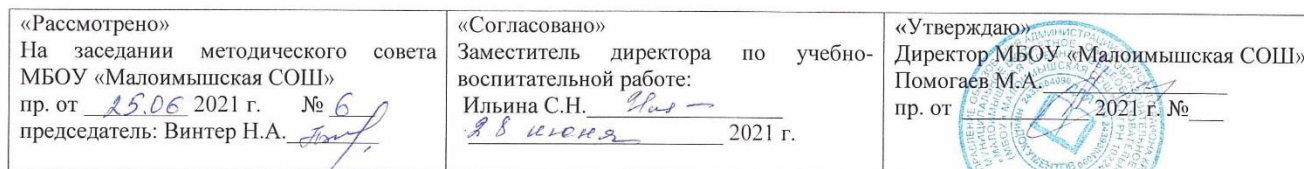 «Рассмотрено»
На заседании методического совета
МБОУ «Малоимышская СОШ»
пр. от 25.06 2021 г. № 6
председатель: Винтер Н.А.
«Согласовано»
Заместитель директора по учебно-
воспитательной работе:
Ильина С.Н.
28 июня 2021 г.
«Утверждаю»
Директор МБОУ «Малоимышская СОШ»
Помогаев М.А.
пр. от 2021 г. №